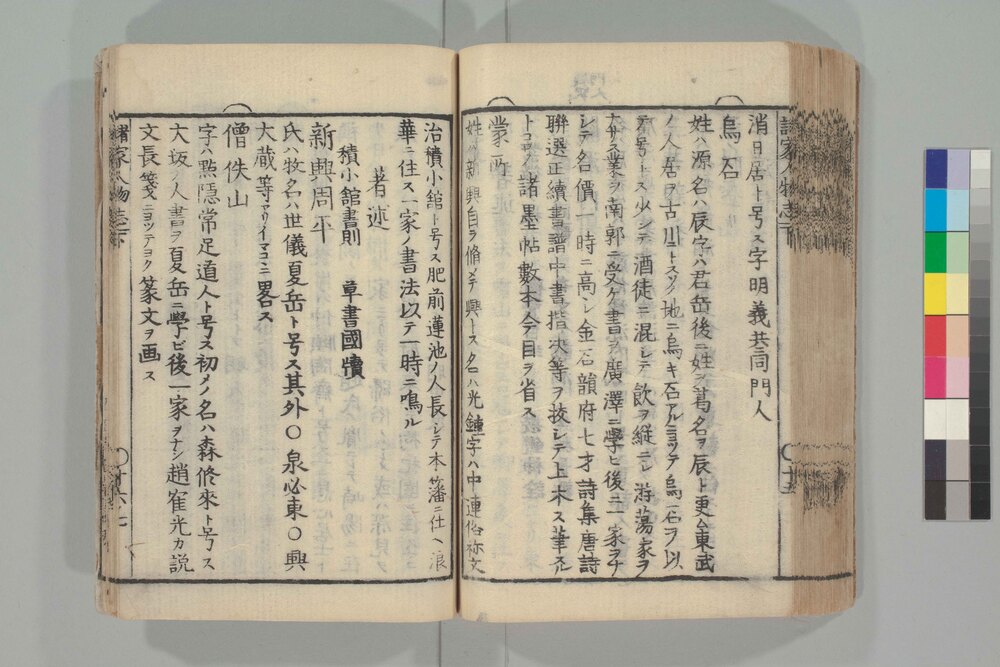 消日居ト号ス字明義共同門人
烏石
姓ハ源名ハ辰字ハ君岳後ニ姓ヲ葛名ヲ辰ト更ム東武
ノ人居ヲ古川ニトス ソノ地ニ烏キ石アルニヨツテ烏石ヲ以
テ号トス少シテ酒徒ニ混シテ飲ヲ縦ニシ游蕩家ヲ
ナサス業ヲ南郭ニ受ケ書ヲ廣澤ニ學ビ後ニ一家ヲナ
シテ名價一時ニ高シ金石韻府七才詩集唐詩
聯選正續書譜中書楷决等ヲ挍シテ上木ス筆
トコロノ諸墨帖數本今目ヲ省ス
蒙所
姓ハ新興自ラ脩メテ興トス名ハ光鍾字ハ中連俗称文
治積小館ト号ス肥前蓮池ノ人長シテ本藩ニ仕ヘ浪
華ニ住ス一家ノ書法以テ一時ニ鳴ル
著述
積小館書則 草書國牘
新興周平
氏ハ牧名ハ世儀夏岳ト号ス其外〇泉必東〇興
大蔵等アリイマコヽニ畧ス
僧佚山
字ハ黙隠常足道人ト号ス初メノ名ハ森修來ト号ス
大坂ノ人書ヲ夏岳ニ學ビ後一家ヲナシ趙寉光カ説
文長箋ニヨツテヨク篆文ヲ画ス
諸家人物志下